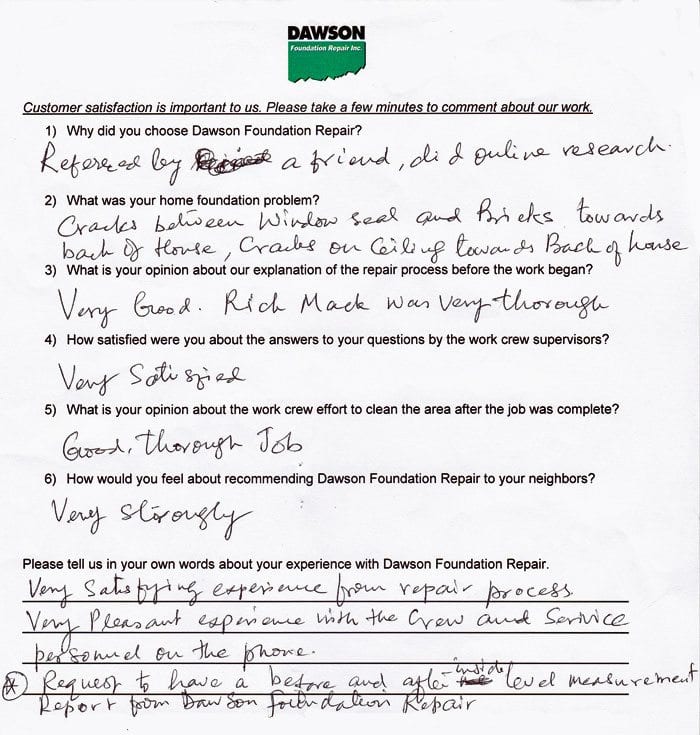 DAWSON
Foundation Repair Inc.
Customer satisfaction is important to us. Please take a few minutes to comment about our work.
1) Why did you choose Dawson Foundation Repair?
Refereed by a friend, did online research.
2) What was your home foundation problem?
Cracks between Window seal and Bricks towards
back of House, Cracks on Ceiling towards Back of house
3) What is your opinion about our explanation of the repair process before the work began?
Very Good. Rich Mack was very thorough
4) How satisfied were you about the answers to your questions by the work crew supervisors?
Very Satisfied
5) What is your opinion about the work crew effort to clean the area after the job was complete?
Good, thorough Job
6) How would you feel about recommending Dawson Foundation Repair to your neighbors?
Very Strongly
Please tell us in your own words about your experience with Dawson Foundation Repair.
Very Satisfying experience from repair process.
Very Pleasant experience with the Crew and Service
personnel on the phone.
* Request to have a before and after inside level measurement
Report from Dawson Foundation Repair